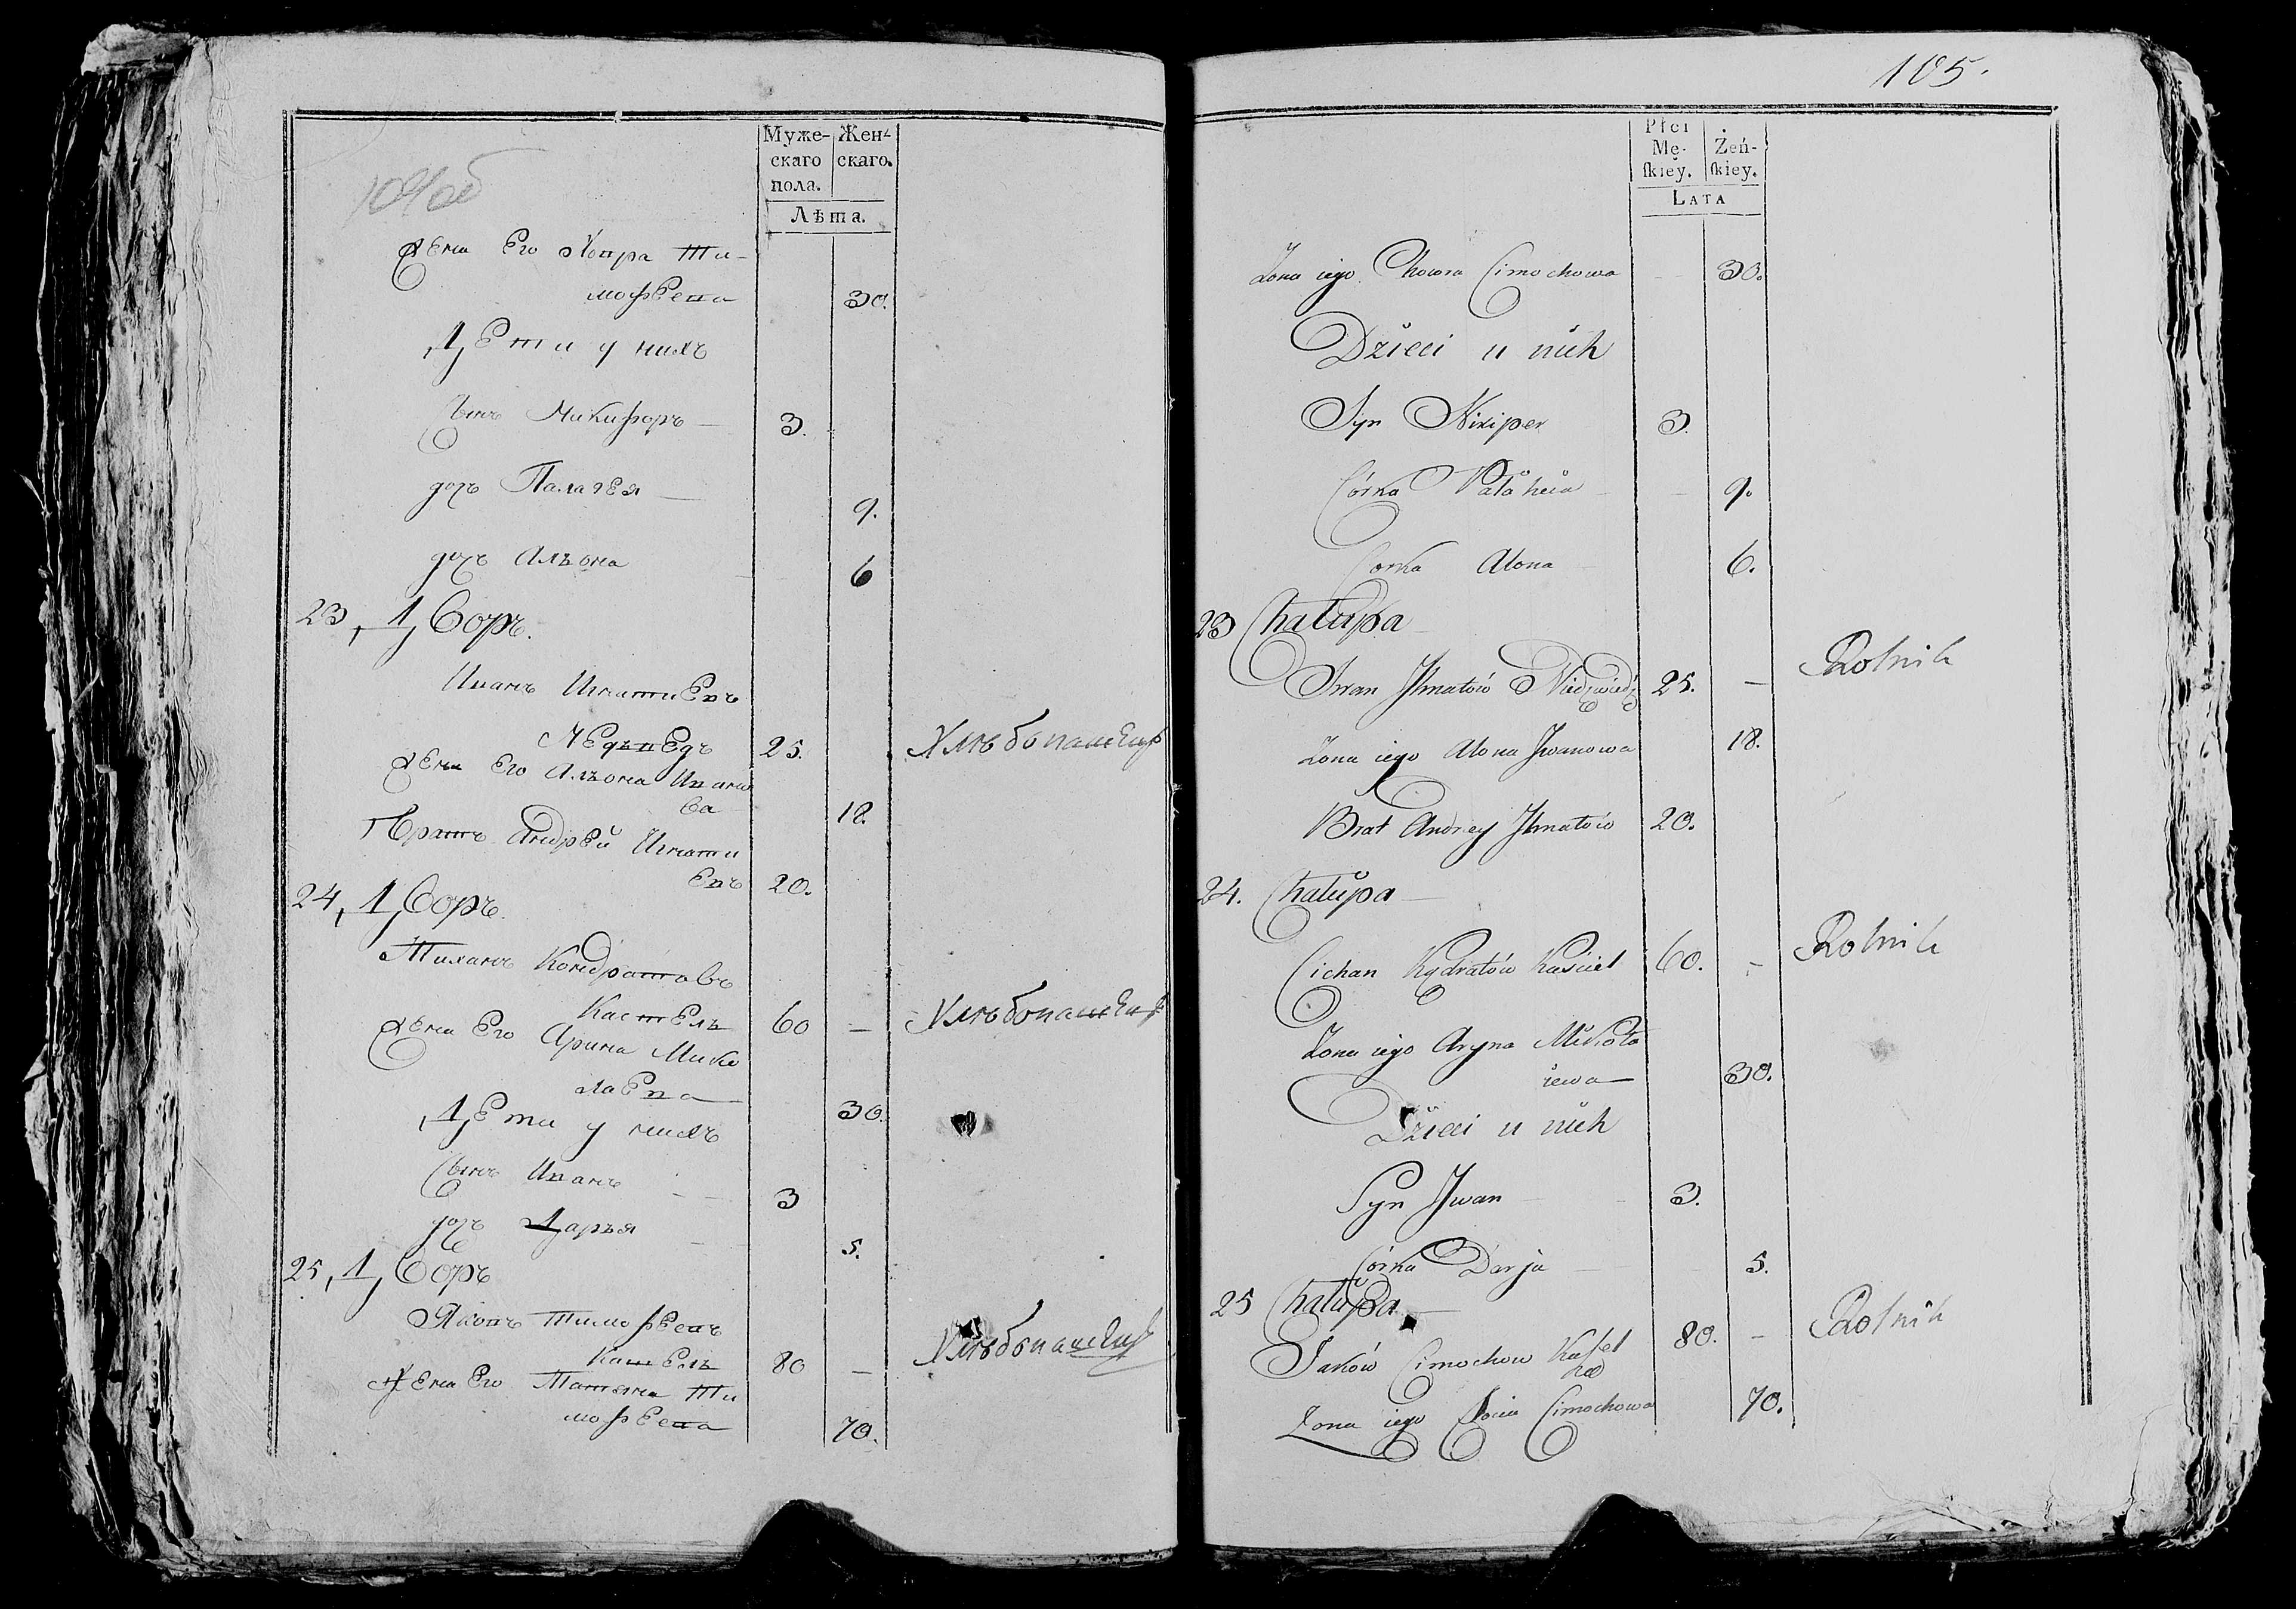 104об
Муже- Жен-
скаго скаго.
пола.
Лѣта.
Жена Его Ховра Ти-
мофѣева 30.
Дети у нихъ
Сынъ Микифоръ 3.
дочь Палагея 9.
дочь Алъона 6
23, Дворъ.
Иванъ Игнатиевъ
Медвѣдь 25. Хлѣбопашецъ
Жена Его Алъона Ивано
ва 18.
Братъ Андрей Игнати
евъ 20.
24, Дворъ.
Тиханъ Кондратовъ
Кастель 60 — Хлѣбопашецъ
Жена Его Арина Мико
лаева 30.
Дети у нихъ
Сынъ Иванъ 3
дочь Дарья 5.
25, Дворъ
Яковъ Тимофеевъ
Кашель 80 — Хлѣбопашецъ
Жена Его Татьяна Ти
мофѣева 70.
105.
Płci
Mę- Żeń-
ſkiey. ſkiey.
LATA
Żona iego Chowra Cimochowa 30.
Dzieci u nich
Syn Nikiper 3.
Córka Pałaheia 9.
Corka Alona 6.
23 Chałupa
Iwan Ihnatów Niedzwiedź 25. — Rolnik
Żona iego Alona Iwanowa 18.
Brat Andrey Ihnatów 20.
24. Chałupa
Cichan Kądratów Kaściel 60. — Rolnik
Żona iego Aryna Mikoła
iewa 30.
Dzieci u nich
Syn Iwan 3.
Córka Darja 5.
25 Chałupa
Jaków Cimochow 80. — Rolnik
Żona iego Cimochowa 70.